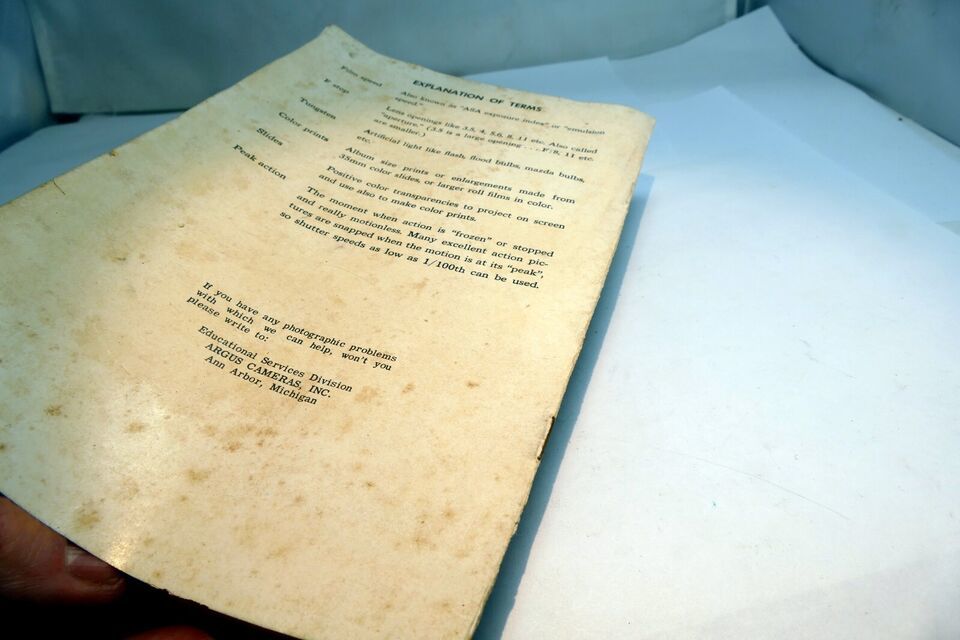 EXPLANATION OF TERMS
Film speed Also known as "ASA exposure index" or "emulsion
speed."
F stop Lens openings like 3.5, 4, 5.6, 8, 11 etc. Also called
"aperture." (3.5 is a large opening . . . F:8, 11 etc.
are smaller.)
Tungsten Artificial light like flash, flood bulbs, mazda bulbs,
etc.
Color prints Album size prints or enlargements made from
35mm color slides, or larger roll films in color.
Slides Positive color transparencies to project on screen
and use also to make color prints.
Peak action The moment when action is "frozen" or stopped
and really motionless. Many excellent action pic-
tures are snapped when the motion is at its "peak",
so shutter speeds as low as 1/100th can be used.
If you have any photographic problems
with which we can help, won't you
please write to:
Educational Services Division
ARGUS CAMERAS, INC.
Ann Arbor, Michigan